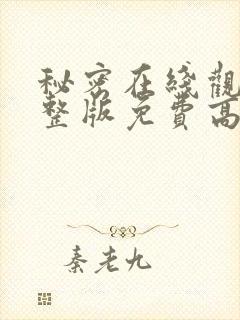 秘密在线觀
整版免費高
秦老九